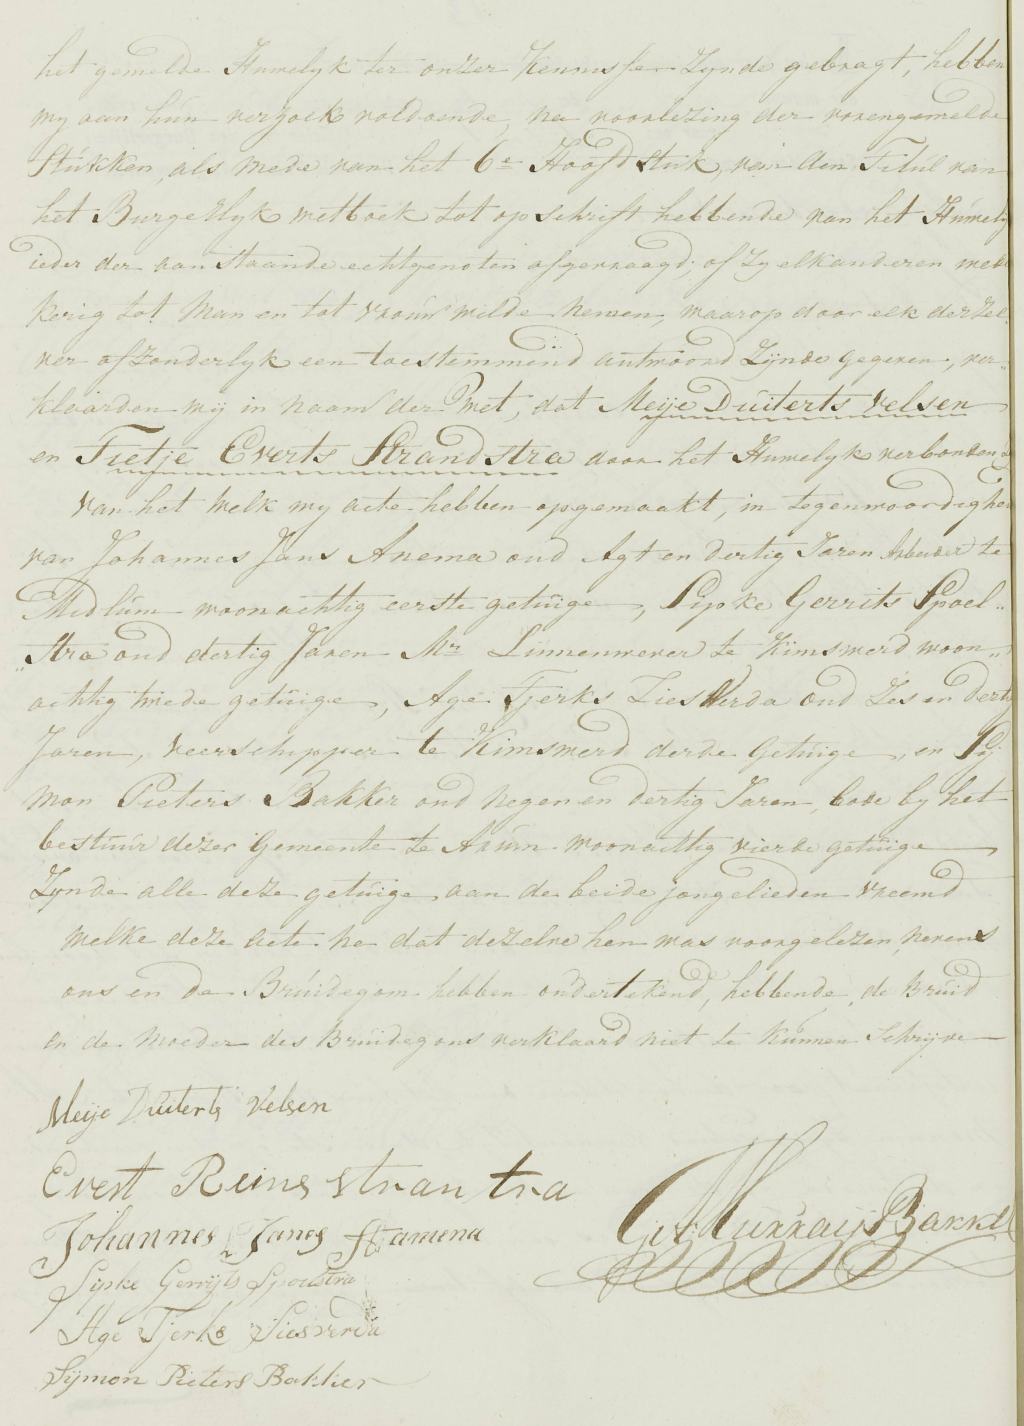 het gemelde Huwelyk ter onzer Kennisse Zynde gebragt, hebben
wy aan hún verzoek voldoende, na voorlezing der vorengemelde
Stúkken, als mede van het 6e Hoofdstúk, van den Titúl van
het Burgerlyk wetboek tot opschrift hebbende van het Húwelyk
ieder der aanstaande echtgenoten afgevraagd; of Zy elkanderen wede
kerig tot Man en tot Vroúw wilde nemen, waarop door elk derzel
ver afzonderlyk een toestemmend antwoord Zÿnde gegeven, ver„
klaarden wÿ in Naam der Wet, dat Meÿe Dúiterts Velsen
en Tietje Everts Strandstra door het Huwelyk verbonden
Van het welk wy acte hebben opgemaakt, in tegenwoordighe
van Johannes Jans Anema oud Agt en dertig Jaren Arbeider te
Midlúm woonachtig eerste getúige, Sipke Gerrits Spoel„
„stra oud dertig Jaren Mr Linnenwever te Kimswerd woon„
achtig twede getúige, Age Tjerks Ziesverda oud Zes en derti
Jaren, veerschipper te Kimswerd derde Getúige, en Sÿ
mon Pieters Bakker oud negen en dertig Jaren, bode by het
bestuúr dezer Gemeente te Arúm woonachtig vierde getúige
Zynde alle deze getúige aan de beide jongelieden vreemd
welke deze acte na dat dezelve hen was voorgelezen, nevens
ons en de Brúidegom hebben ondertekend, hebbende de Brúid
en de Moeder des Brúidegoms verklaard niet te Kúnnen Schryve
Meije Duiterts Velsen
Evert Reins strantra
Johannes Janes
Murraÿ Bakker
Sipke Gerrijts Spoelstra
Age Tjerks Siesverda
Sijmon Pieters Bakker